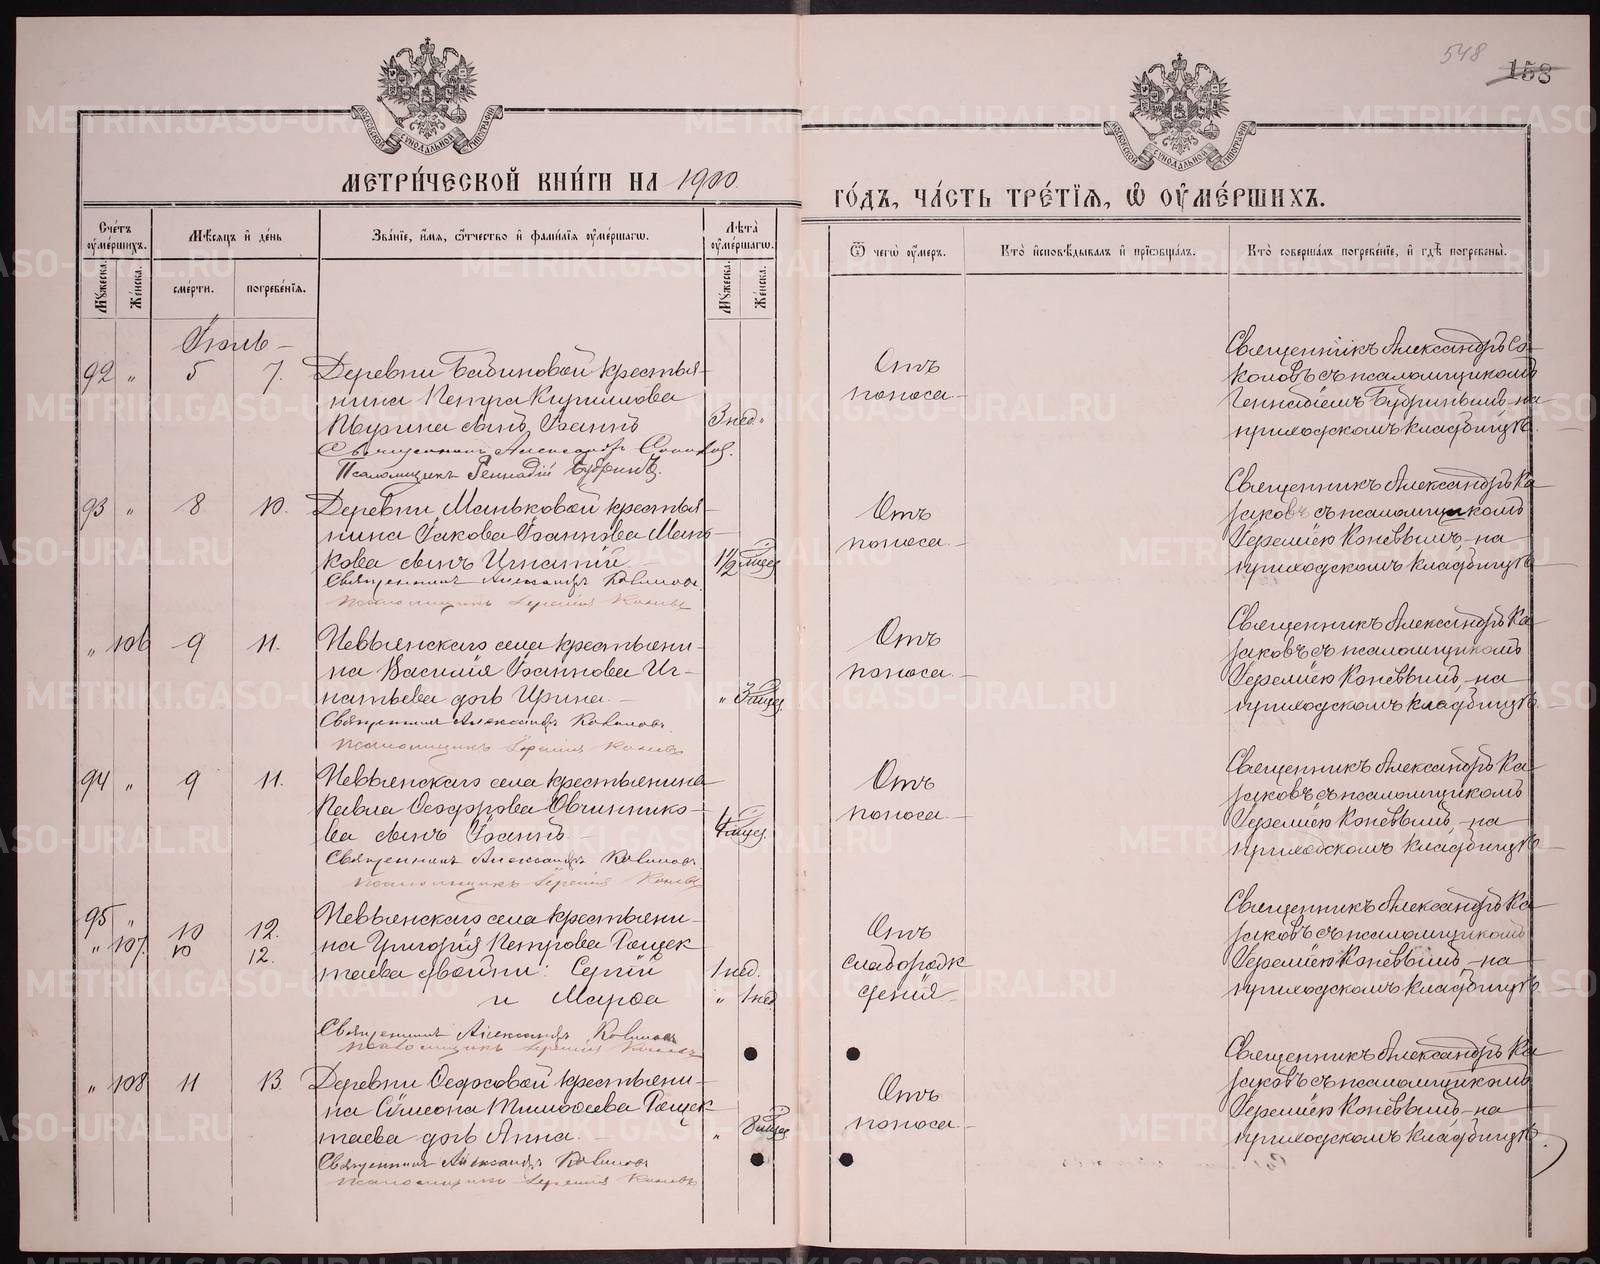 548
158
МЕТРИ́ЧЕСКОЙ КНИ́ГИ НА 1900
ГО́ДЪ, ЧА́СТЬ ТРЕ́ТІЯ, Ѡ҆ ОУ҆МЕ́РШИХЪ.
Сче́тъ оу҆ме́ршихъ.
Мꙋжеска.
Же́нска.
Мѣ́сяцъ и҆ де́нь
сме́рти.
погребе́нія.
Зва́ніе, и҆́мя, ѻ҆́тчество и҆ фамилія оу҆ме́ршагѡ.
Лѣ́та оу҆ме́ршагѡ.
Мꙋжеска.
Же́нска.
Ѿ чегѡ̀ оу҆́меръ.
Кто̀ и҆сповѣ́дывалъ и҆ прїѡбща́лъ.
Кто̀ соверша́лъ погребе́ніе, и҆ гдѣ̀ погребены̀.
Іюль
92 " 5 7.
Деревни Бабиновой крестья-
нина Петра Кириллова
Пырина сынъ Іоаннъ
3 нед. "
Священникъ Александръ Соколов.
Псаломщикъ Геннадій Будринъ.
Отъ
поноса
Священникъ Александръ Со-
коловъ съ псаломщикомъ
Геннадіемъ Будринымъ на
приходскомъ кладбищѣ.
93 " 8 10.
Деревни Маньковой крестья-
нина Іакова Іоаннова Мань-
кова сынъ Игнатій
1½ мѣсяц
Священникъ Александръ
псаломщикъ Іеремія Коневъ
Отъ
поноса
Священникъ Александръ Ка-
заковъ съ псаломщикомъ
Іереміею Коневымъ на
приходскомъ кладбищѣ
" 106 9 11.
Невьянскаго села крестьяни-
на Василія Іоаннова Иг-
натьева дочь Ирина.
" 3 мѣсяц
Священникъ Александръ
псаломщикъ Іеремія Коневъ
Отъ
поноса
Священникъ Александръ Ка-
заковъ съ псаломщикомъ
Іереміею Коневымъ на
приходскомъ кладбищѣ
94 " 9 11.
Невьянскаго села крестьянина
Павла Ѳеодорова Овчиннико-
ва сынъ Іоаннъ
Священникъ Александръ
псаломщикъ Іеремія Коневъ
Отъ
поноса
Священникъ Александръ Ка-
заковъ съ псаломщикомъ
Іереміею Коневымъ на
приходскомъ кладбищѣ
95 " 10 12.
" 107. 10 12.
Невьянскаго села крестьяни-
на Григорія Петрова Ращек
таева двойни: Сергій
и Марѳа
1 нед.
" 1 нед
Священникъ Александръ
псаломщикъ Іеремія Коневъ
Отъ
слаборож
денія
Священникъ Александръ Ка-
заковъ съ псаломщикомъ
Іереміею Коневымъ на
приходскомъ кладбищѣ
" 108 11 13.
Деревни Ѳедосовой крестьяни-
на Сѵмеона Тимоѳеева Ращек
таева дочь Анна.
Священникъ Александръ
псаломщикъ Іеремія Коневъ
Отъ
поноса
Священникъ Александръ Ка-
заковъ съ псаломщикомъ
Іереміею Коневымъ на
приходскомъ кладбищѣ.
METRIKI.GASO-URAL.RU